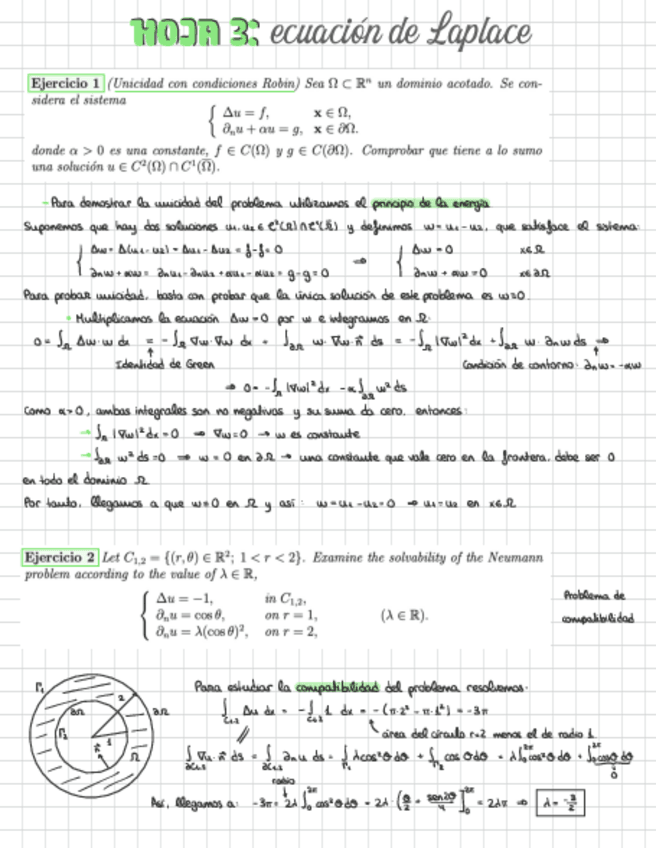 HOJA 3: ecuación de Laplace
Ejercicio 1 (Unicidad con condiciones Robin) Sea Ω ⊂ ℝⁿ un dominio acotado. Se con-
sidera el sistema
Δu = f, x ∈ Ω,
∂ₙu + αu = g, x ∈ ∂Ω.
donde α > 0 es una constante, f ∈ C(Ω) y g ∈ C(∂Ω). Comprobar que tiene a lo sumo
una solución u ∈ C²(Ω) ∩ C¹(Ω̅).
- Para demostrar la unicidad del problema utilizamos el principio de la energía
Suponemos que hay dos soluciones u₁, u₂ ∈ C²(Ω) ∩ C¹(Ω̅) y definimos w = u₁ - u₂, que satisface el sistema:
{ Δw = Δ(u₁ - u₂) = Δu₁ - Δu₂ = f - f = 0 ⇒ { Δw = 0 x∈Ω
∂ₙw + αw = ∂ₙu₁ - ∂ₙu₂ + αu₁ - αu₂ = g - g = 0 ∂ₙw + αw = 0 x∈∂Ω
Para probar unicidad, basta con probar que la única solución de este problema es w=0.
• Multiplicamos la ecuación Δw = 0 por w e integramos en Ω:
0 = ∫_Ω Δw·w dx = -∫_Ω ∇w·∇w dx + ∫_∂Ω w·∇w·n⃗ ds = -∫_Ω |∇w|² dx + ∫_∂Ω w·∂ₙw ds ⇒
Identidad de Green Condición de contorno: ∂ₙw = -αw
⇒ 0 = -∫_Ω |∇w|² dx - α∫_∂Ω w² ds
Como α>0, ambas integrales son no negativas y su suma da cero, entonces:
→ ∫_Ω |∇w|² dx = 0 ⇒ ∇w = 0 → w es constante
→ ∫_∂Ω w² ds = 0 ⇒ w = 0 en ∂Ω → una constante que vale cero en la frontera, debe ser 0
en todo el dominio Ω
Por tanto, llegamos a que w=0 en Ω y así: w = u₁ - u₂ = 0 ⇒ u₁ = u₂ en x∈Ω
Ejercicio 2 Let C₁,₂ = {(r, θ) ∈ ℝ²; 1 < r < 2}. Examine the solvability of the Neumann
problem according to the value of λ ∈ ℝ,
Δu = -1, in C₁,₂,
∂ₙu = cos θ, on r = 1, (λ ∈ ℝ).
∂ₙu = λ(cos θ)², on r = 2,
Problema de
compatibilidad
Para estudiar la compatibilidad del problema resolvemos:
∫ Δu dx = -∫ 1 dx = -(π·2² - π·1²) = -3π
área del círculo r=2 menos el de radio 1
∫ ∇u·n⃗ ds = ∫ ∂ₙu ds = ∫ λcos²θ dθ + ∫ cos θ dθ = λ∫ cos²θ dθ + ∫ cos θ dθ
0
radio
Así, llegamos a: -3π = 2λ ∫₀^2π cos²θ dθ = 2λ·(θ/2 + sen2θ/4)]₀^2π = 2λπ ⇒ λ = -3/2